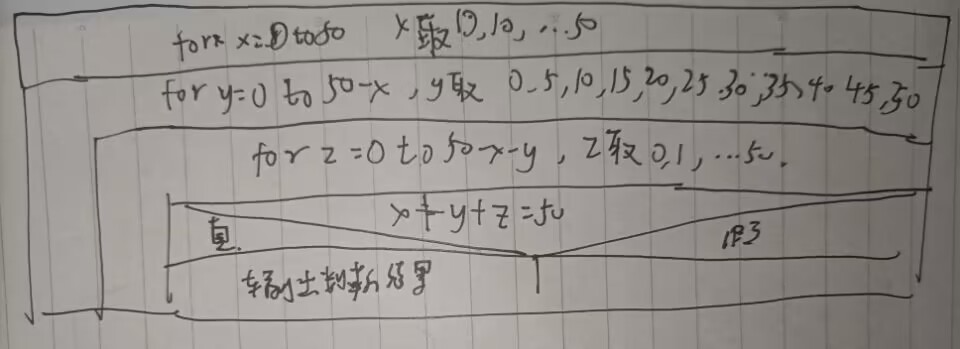 for x=0 to 50 x取 0,10,...50
for y=0 to 50-x,y取 0,5,10,15,20,25,30,35,40,45,50
for z=0 to 50-x-y,z取 0,1,...50.
x+y+z=50
真. 假
输出判断结果